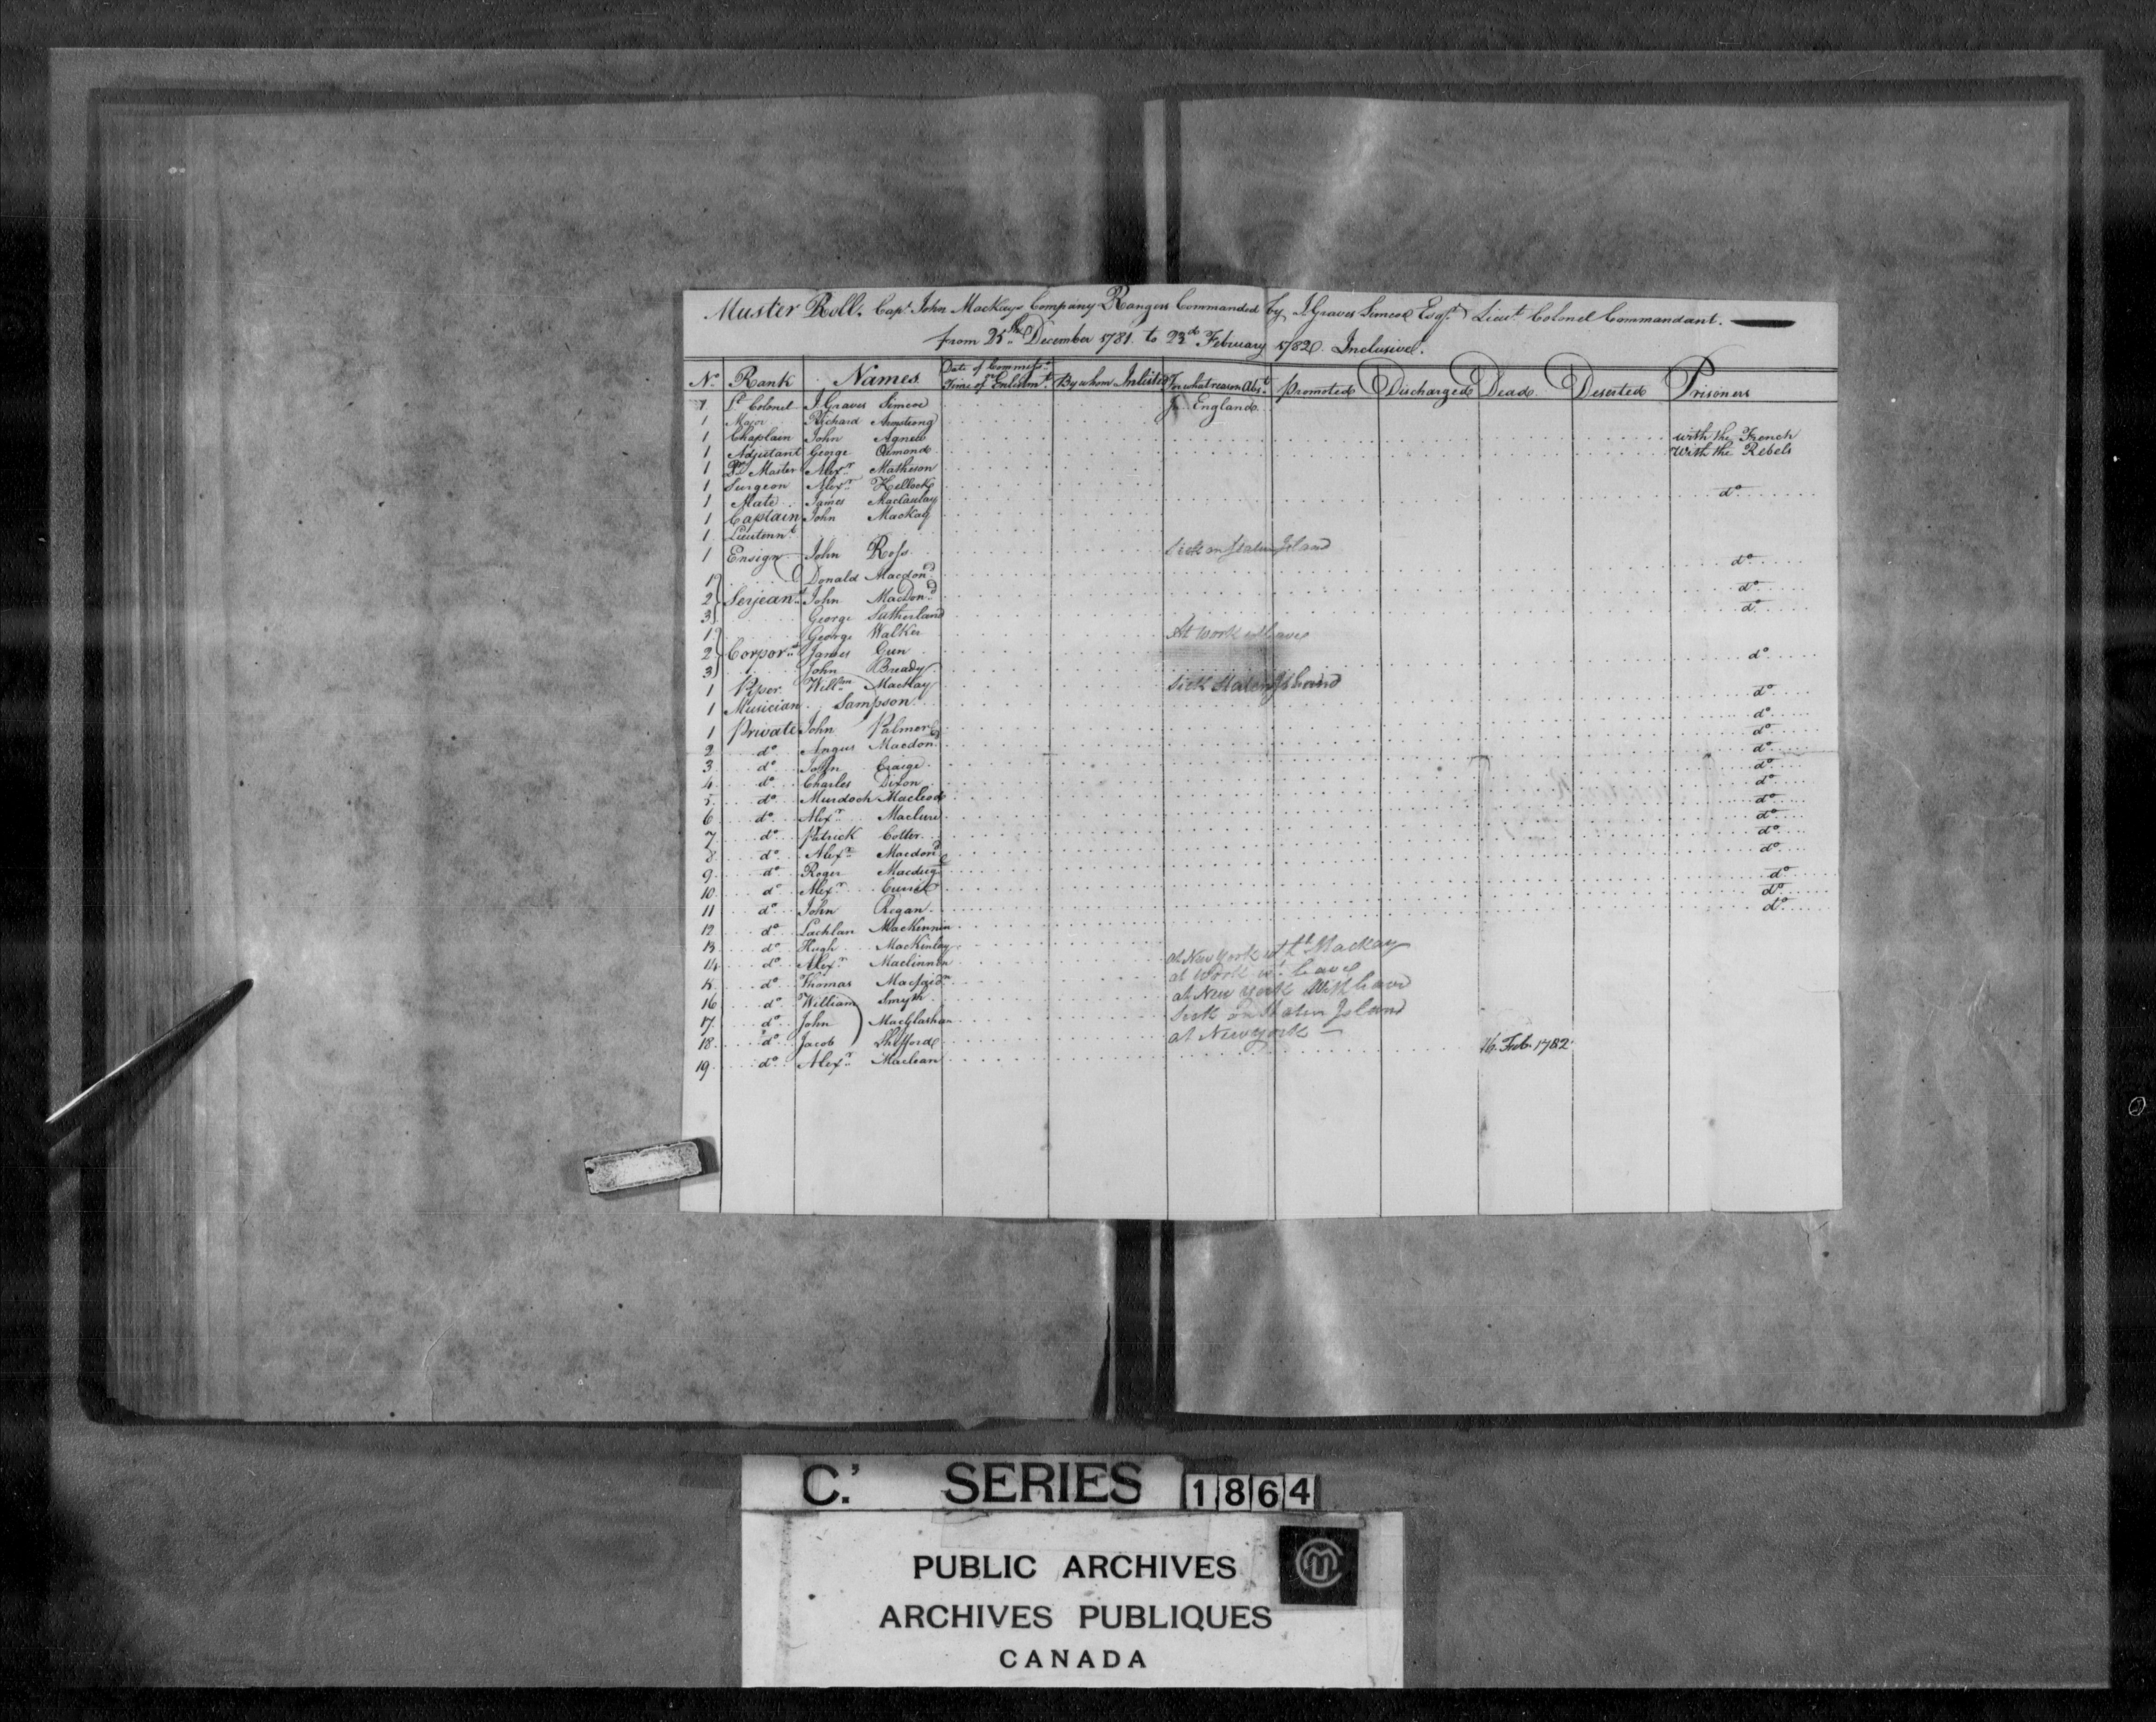 Muster Roll. Capt. John MacKays Company Rangers Commanded by J. Graves Simcoe Esqr. Lieut. Colonel Commandant.
from 25th December 1781 to 23d February 1782 Inclusive.
No. Rank Names Date of Commissn. or Time of Enlistmt. By whom Inlisted For what reason Abst. Promoted Discharged Dead Deserted Prisoners
1 Lt. Colonel J. Graves Simcoe In England
1 Major Richard Armstrong
1 Chaplain John Agnew with the French
1 Adjutant George Ormond with the Rebels
1 Qr. Master Alexr. Matheson
1 Surgeon Alexr. Kellock
1 Mate James Macaulay do.
1 Captain John MacKay
1 Lieutennt.
1 Ensign John Ross Sick on Staten Island
1 Donald Macdond. do.
2 Serjeant John MacDond. do.
3 George Sutherland do.
1 George Walker At work with leave
2 Corporl. James Gun
3 John Bready do.
1 Piper Willm. MacKay Sick Staten Island
1 Musician Sampson do.
1 Private John Palmer do.
2 do. Angus Macdond. do.
3 do. John Craige do.
4 do. Charles Dixon do.
5 do. Murdoch Macleod do.
6 do. Alexr. Maclure do.
7 do. Patrick Cotter do.
8 do. Alexr. Macdond. do.
9 do. Roger do.
10 do. Alexr. Currie
11 do. John Regan do.
12 do. Lachlan MacKinnin do.
13 do. Hugh MacKinlay do.
14 do. Alexr. Maclinnin at New York wt. Lt. MacKay
15 do. Thomas at Work wt. leave
16 do. William Smyth at New York With leave
17 do. John MacGlashan Sick on Staten Island
18 do. Jacob Shefford at New York
19 do. Alexr. Maclean 16. Feb. 1782
C.' SERIES 1864
PUBLIC ARCHIVES
ARCHIVES PUBLIQUES
CANADA